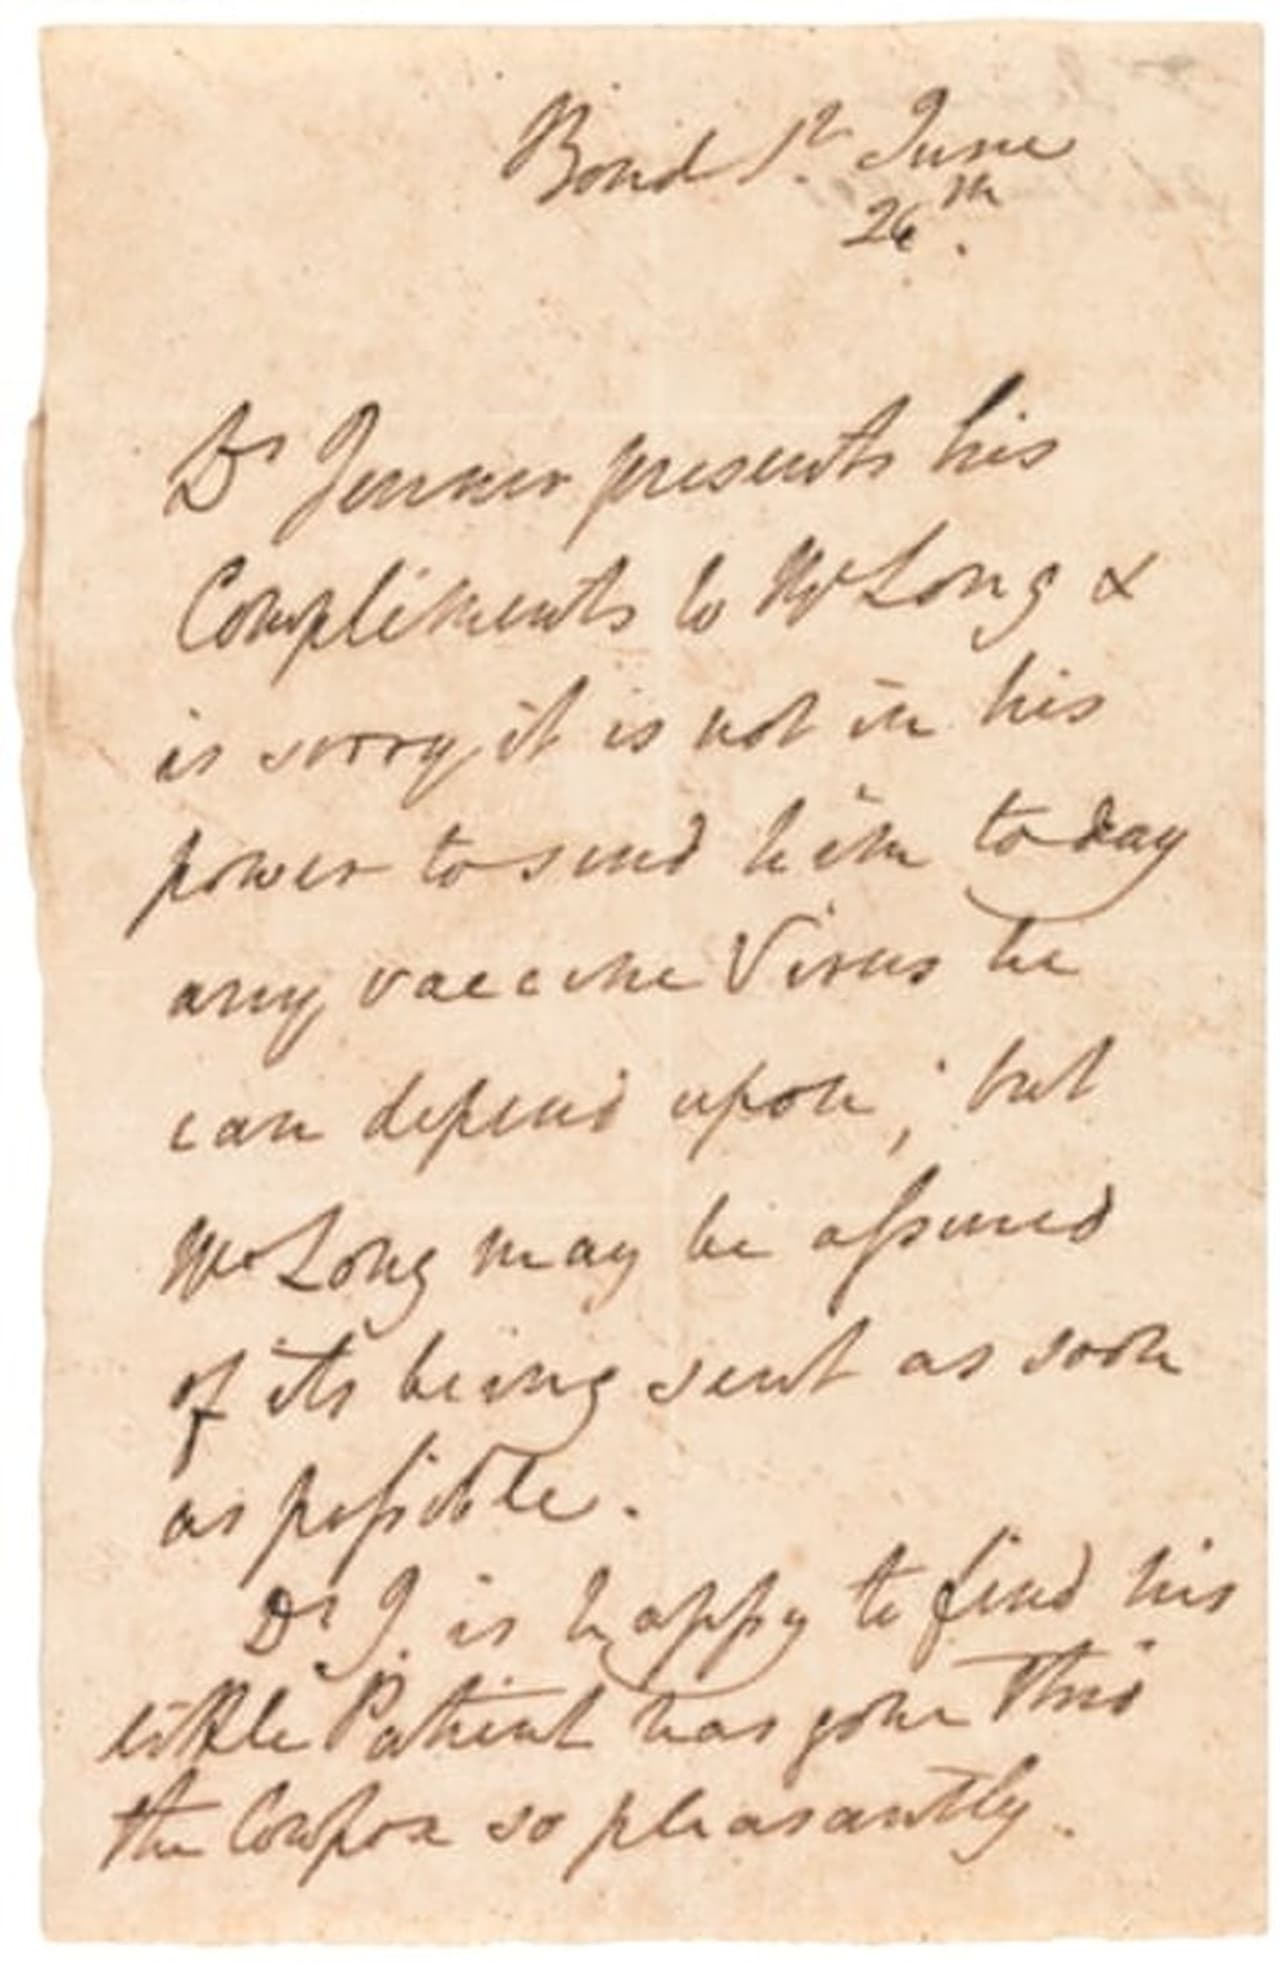 Bond St. June
26th.
Dr Jenner presents his
Compliments to Mr Long &
is sorry it is not in his
power to send him to day
any vaccine Virus he
can depend upon; but
Mr Long may be assured
of its being sent as soon
as possible.
Dr J. is happy to find his
little Patient has gone thro'
the Cowpox so pleasantly.